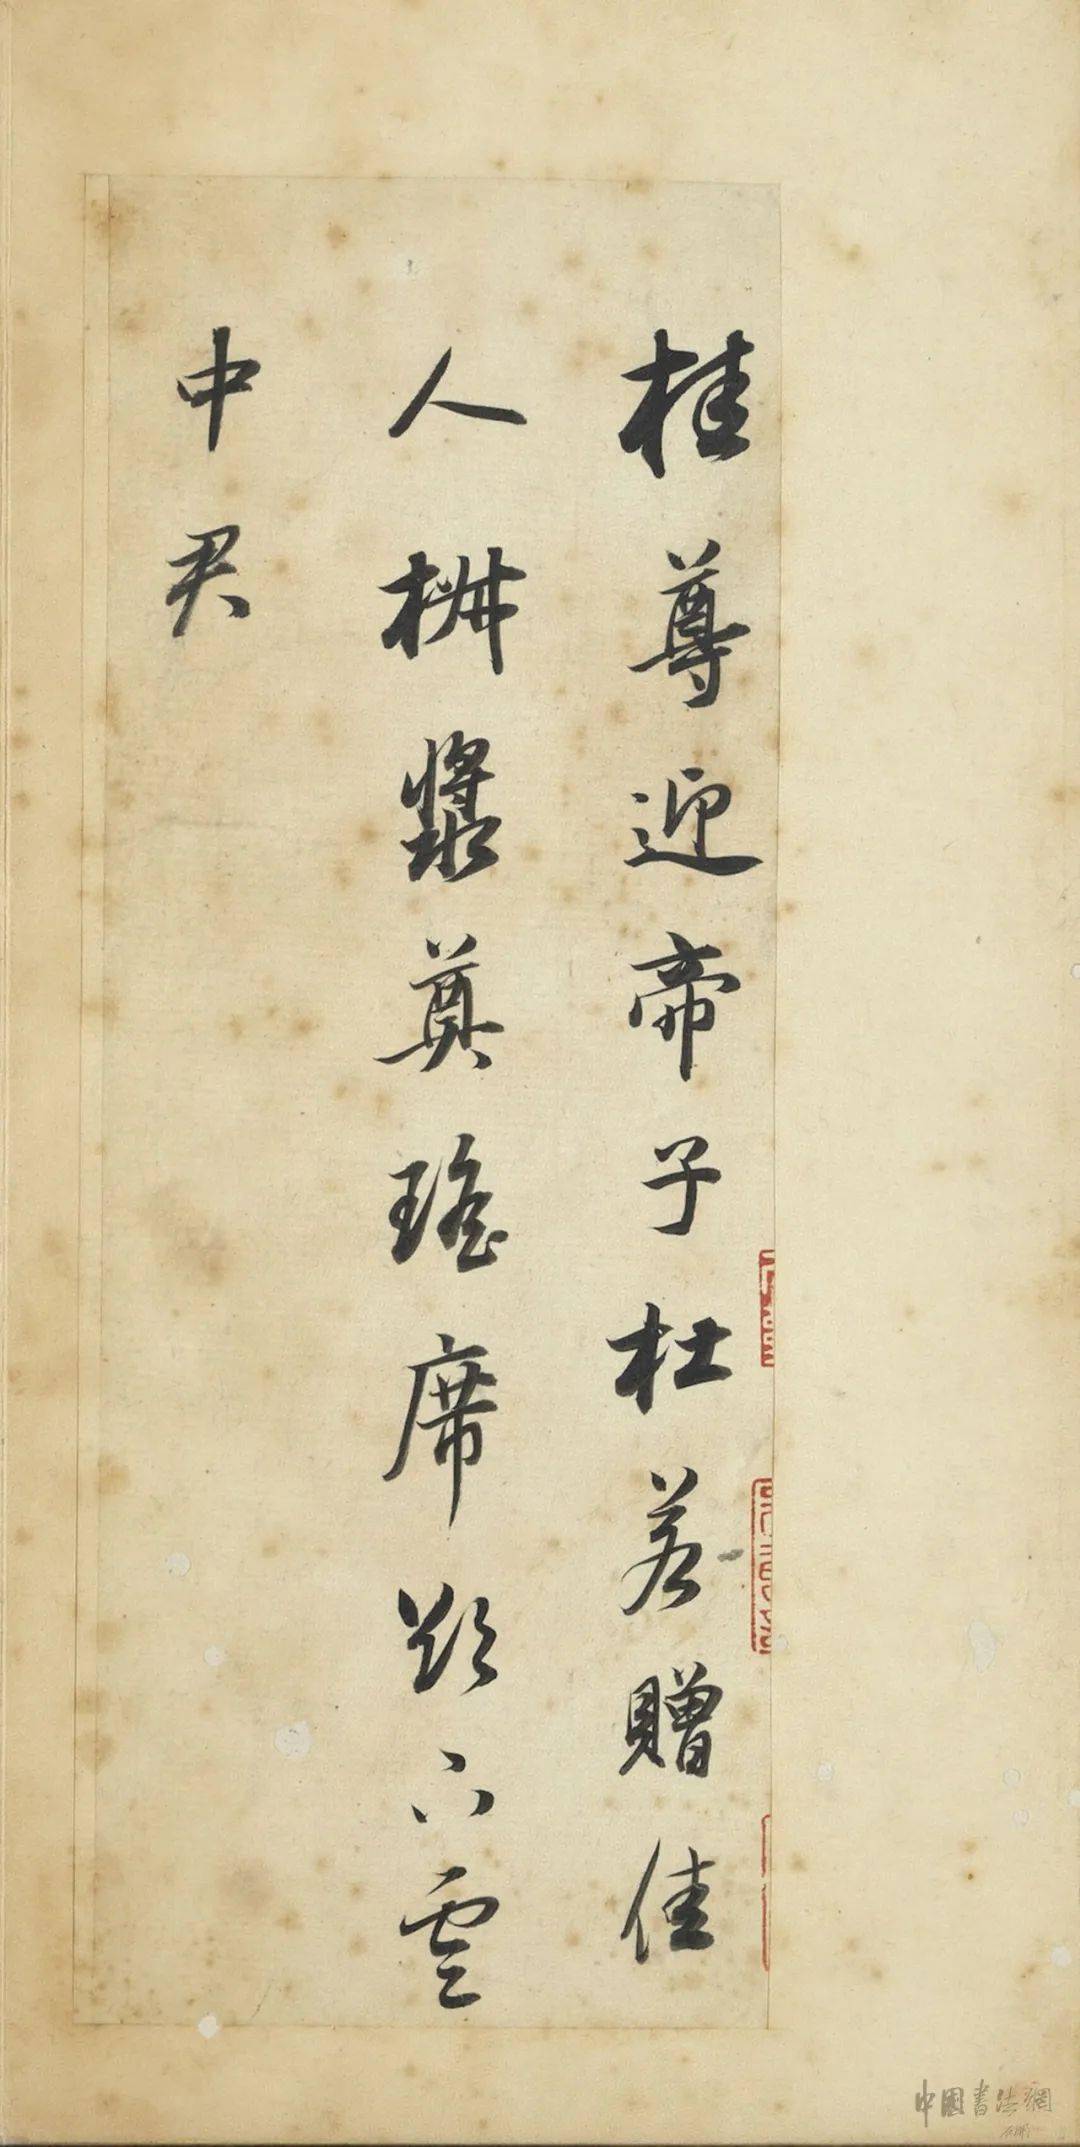 桂尊迎帝子杜若贈佳
人椒漿奠瑤席欲下雲
中君
中國書法網